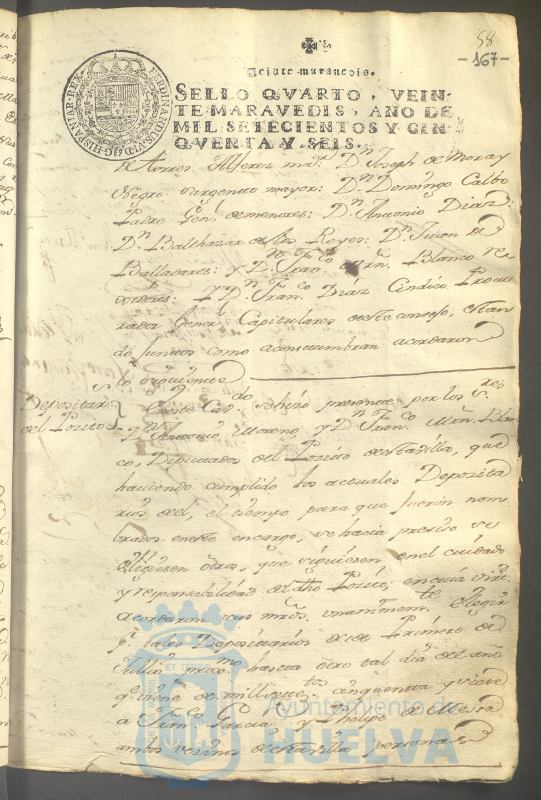 58
-167-
Veinte maravedis.
SELLO QVARTO, VEIN-
TE MARAVEDIS, AÑO DE
MIL SETECIENTOS Y CIN-
QVENTA Y SEIS.
de Torres Alferez mr. Dn. Joseph de Mora y
Negro Sargento mayor: Dn. Domingo Calbo
Padre Gen. de menores: Dn. Antonio Diaz:
Dn. Balthasar de los Reyes: Dn. Juan de
Balladares: y Dn. Franco. Mrn. Blanco Re
gidores: y Dn. Franco. Diaz Cindico Procu
rador Genel. Capitulares deste consejo, estan
do juntos como acostumbran acordaron
lo siguiente
Depositarios
del Posito
En este Cavdo. se hizo presente por los Sres.
Dn. Antonio Moreno, y Dn. Franco. Mrn. Blan
co, Diputados del Posito desta villa, que
haviendo cumplido los actuales Deposita
rios del, el tiempo para que fueron nom
brados en este encargo, se hacia preciso se
elixiesen otros, que siguiesen en el cuidado
y responsabilidad del dho Posito, en cuia virt.
acordaron sus mrds. unanimemte. elegir
pr. tales Depositarios desde Primero de
Jullio proxmo. hasta otro tal dia del año
qe. viene de mill setetos. cinquenta y siete
a Franco. Garcia, y Phelipe de Messa
ambos vecinos desta villa personas
Ayuntamiento de
HUELVA